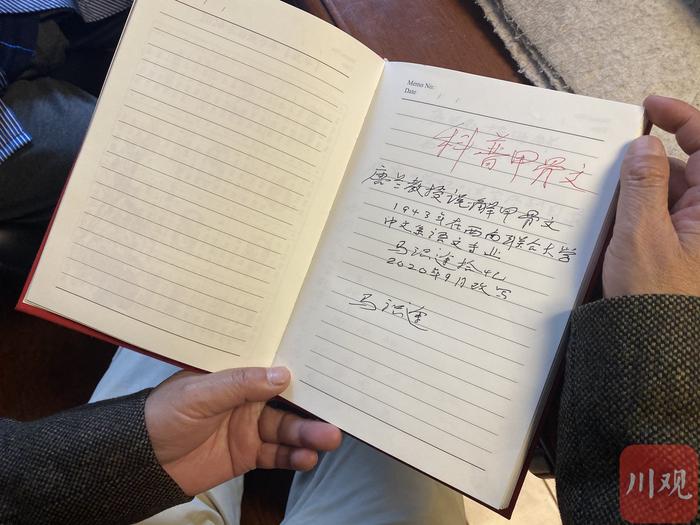 Memo No.
Date
科普甲骨文
唐兰教授说解甲骨文
1943年在西南联合大学
中文系语文专业
马识途拾忆
2020年9月改写
马识途
川观